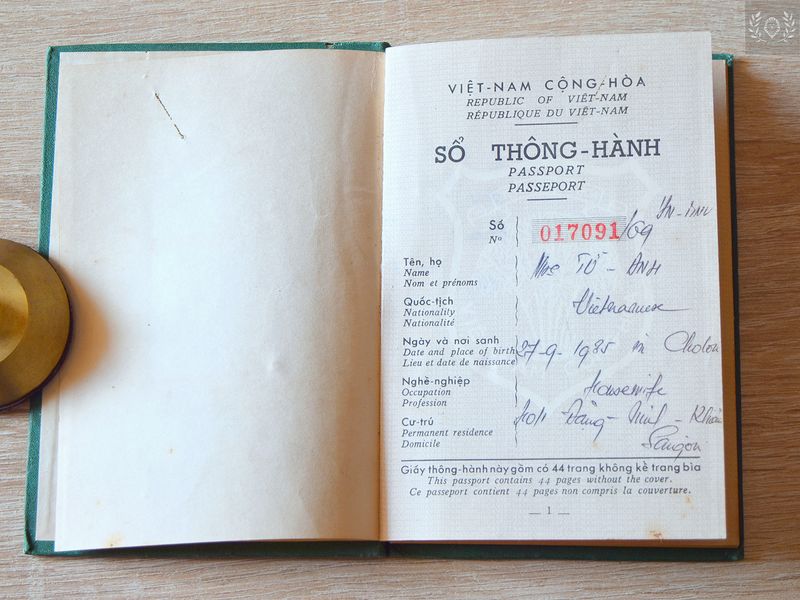 VIỆT-NAM CỘNG-HÒA
REPUBLIC OF VIÊT-NAM
RÉPUBLIQUE DU VIÊT-NAM
SỔ THÔNG-HÀNH
PASSPORT
PASSEPORT
Số
Nº 017091/69
Tên, họ
Name Mrs TÚ - ANH
Nom et prénoms
Quốc-tịch
Nationality Vietnamese
Nationalité
Ngày và nơi sanh
Date and place of birth 27-9-1935 in Cholon
Lieu et date de naissance
Nghề-nghiệp
Occupation Housewife
Profession
Cư-trú
Permanent residence
Domicile Saigon
Giấy thông-hành này gồm có 44 trang không kể trang bìa
This passport contains 44 pages without the cover.
Ce passeport contient 44 pages non compris la couverture.
— 1 —